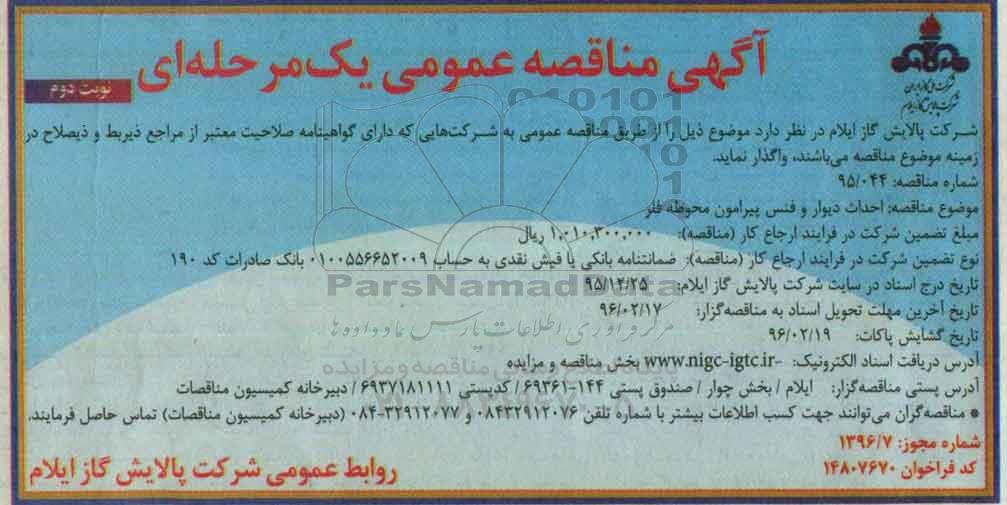 آگهی مناقصه عمومی یک‌مرحله‌ای
نوبت دوم
شرکت ملی گاز ایران
شرکت پالایش گاز ایلام
شرکت پالایش گاز ایلام در نظر دارد موضوع ذیل را از طریق مناقصه عمومی به شرکت‌هایی که دارای گواهینامه صلاحیت معتبر از مراجع ذیربط و ذیصلاح در
زمینه موضوع مناقصه می‌باشند، واگذار نماید.
شماره مناقصه: ۹۵/۰۴۴
موضوع مناقصه: احداث دیوار و فنس پیرامون محوطه فلر
مبلغ تضمین شرکت در فرایند ارجاع کار (مناقصه): ۱,۰۱۰,۳۰۰,۰۰۰ ریال
نوع تضمین شرکت در فرایند ارجاع کار (مناقصه): ضمانتنامه بانکی یا فیش نقدی به حساب ۰۱۰۰۵۵۶۶۵۲۰۰۹ بانک صادرات کد ۱۹۰
تاریخ درج اسناد در سایت شرکت پالایش گاز ایلام: ۹۵/۱۲/۲۵
تاریخ آخرین مهلت تحویل اسناد به مناقصه‌گزار: ۹۶/۰۲/۱۷
تاریخ گشایش پاکات: ۹۶/۰۲/۱۹
آدرس دریافت اسناد الکترونیک: -www.nigc-igtc.ir بخش مناقصه و مزایده
آدرس پستی مناقصه‌گزار: ایلام / بخش چوار / صندوق پستی ۱۴۴-۶۹۳۶۱ / کدپستی ۶۹۳۷۱۸۱۱۱۱ / دبیرخانه کمیسیون مناقصات
● مناقصه‌گران می‌توانند جهت کسب اطلاعات بیشتر با شماره تلفن ۰۸۴۳۲۹۱۲۰۷۶ و ۳۲۹۱۲۰۷۷-۰۸۴ (دبیرخانه کمیسیون مناقصات) تماس حاصل فرمایند.
شماره مجوز: ۱۳۹۶/۷
کد فراخوان ۱۴۸۰۷۶۷۰
روابط عمومی شرکت پالایش گاز ایلام
ParsNamadData
مرکز فرآوری اطلاعات پارس نماد داده ها